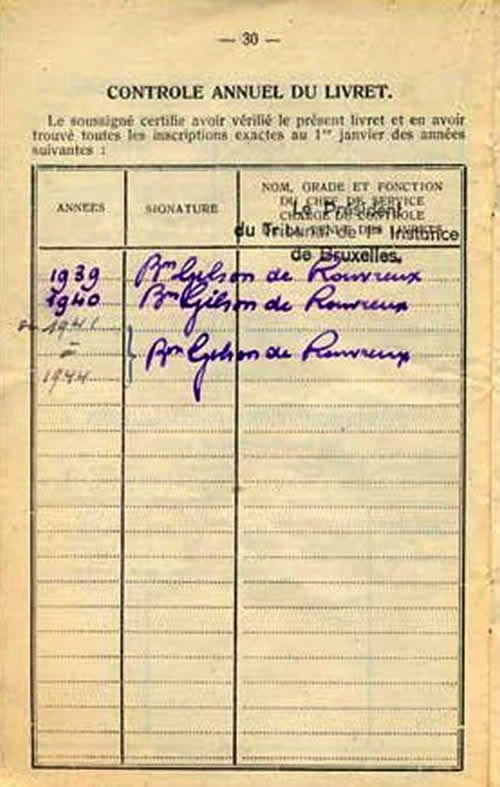 — 30 —
CONTROLE ANNUEL DU LIVRET.
Le soussigné certifie avoir vérifié le présent livret et en avoir
trouvé toutes les inscriptions exactes au 1er janvier des années
suivantes :
ANNEES
SIGNATURE
NOM, GRADE ET FONCTION
DU CHEF DE SERVICE
CHARGÉ DU CONTROLE
Le Président
du Tribunal de 1e Instance
de Bruxelles.
1939 Bon Gilson de Rouvreux
1940 Bon Gilson de Rouvreux
1941
à
Bon Gilson de Rouvreux
1944